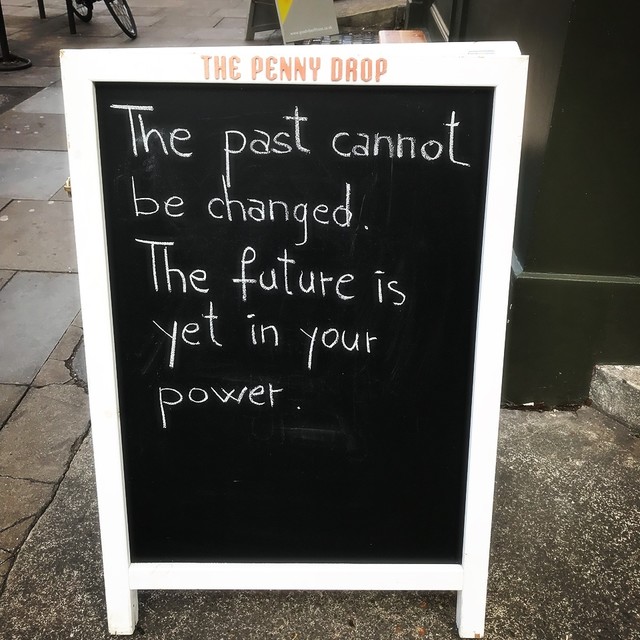 THE PENNY DROP
The past cannot
be changed.
The future is
yet in your
power.